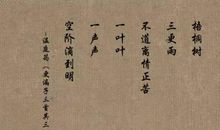 梧桐树
三更雨
不道离情正苦
一叶叶
一声声
空阶滴到明
—温庭筠《更漏子三首其三